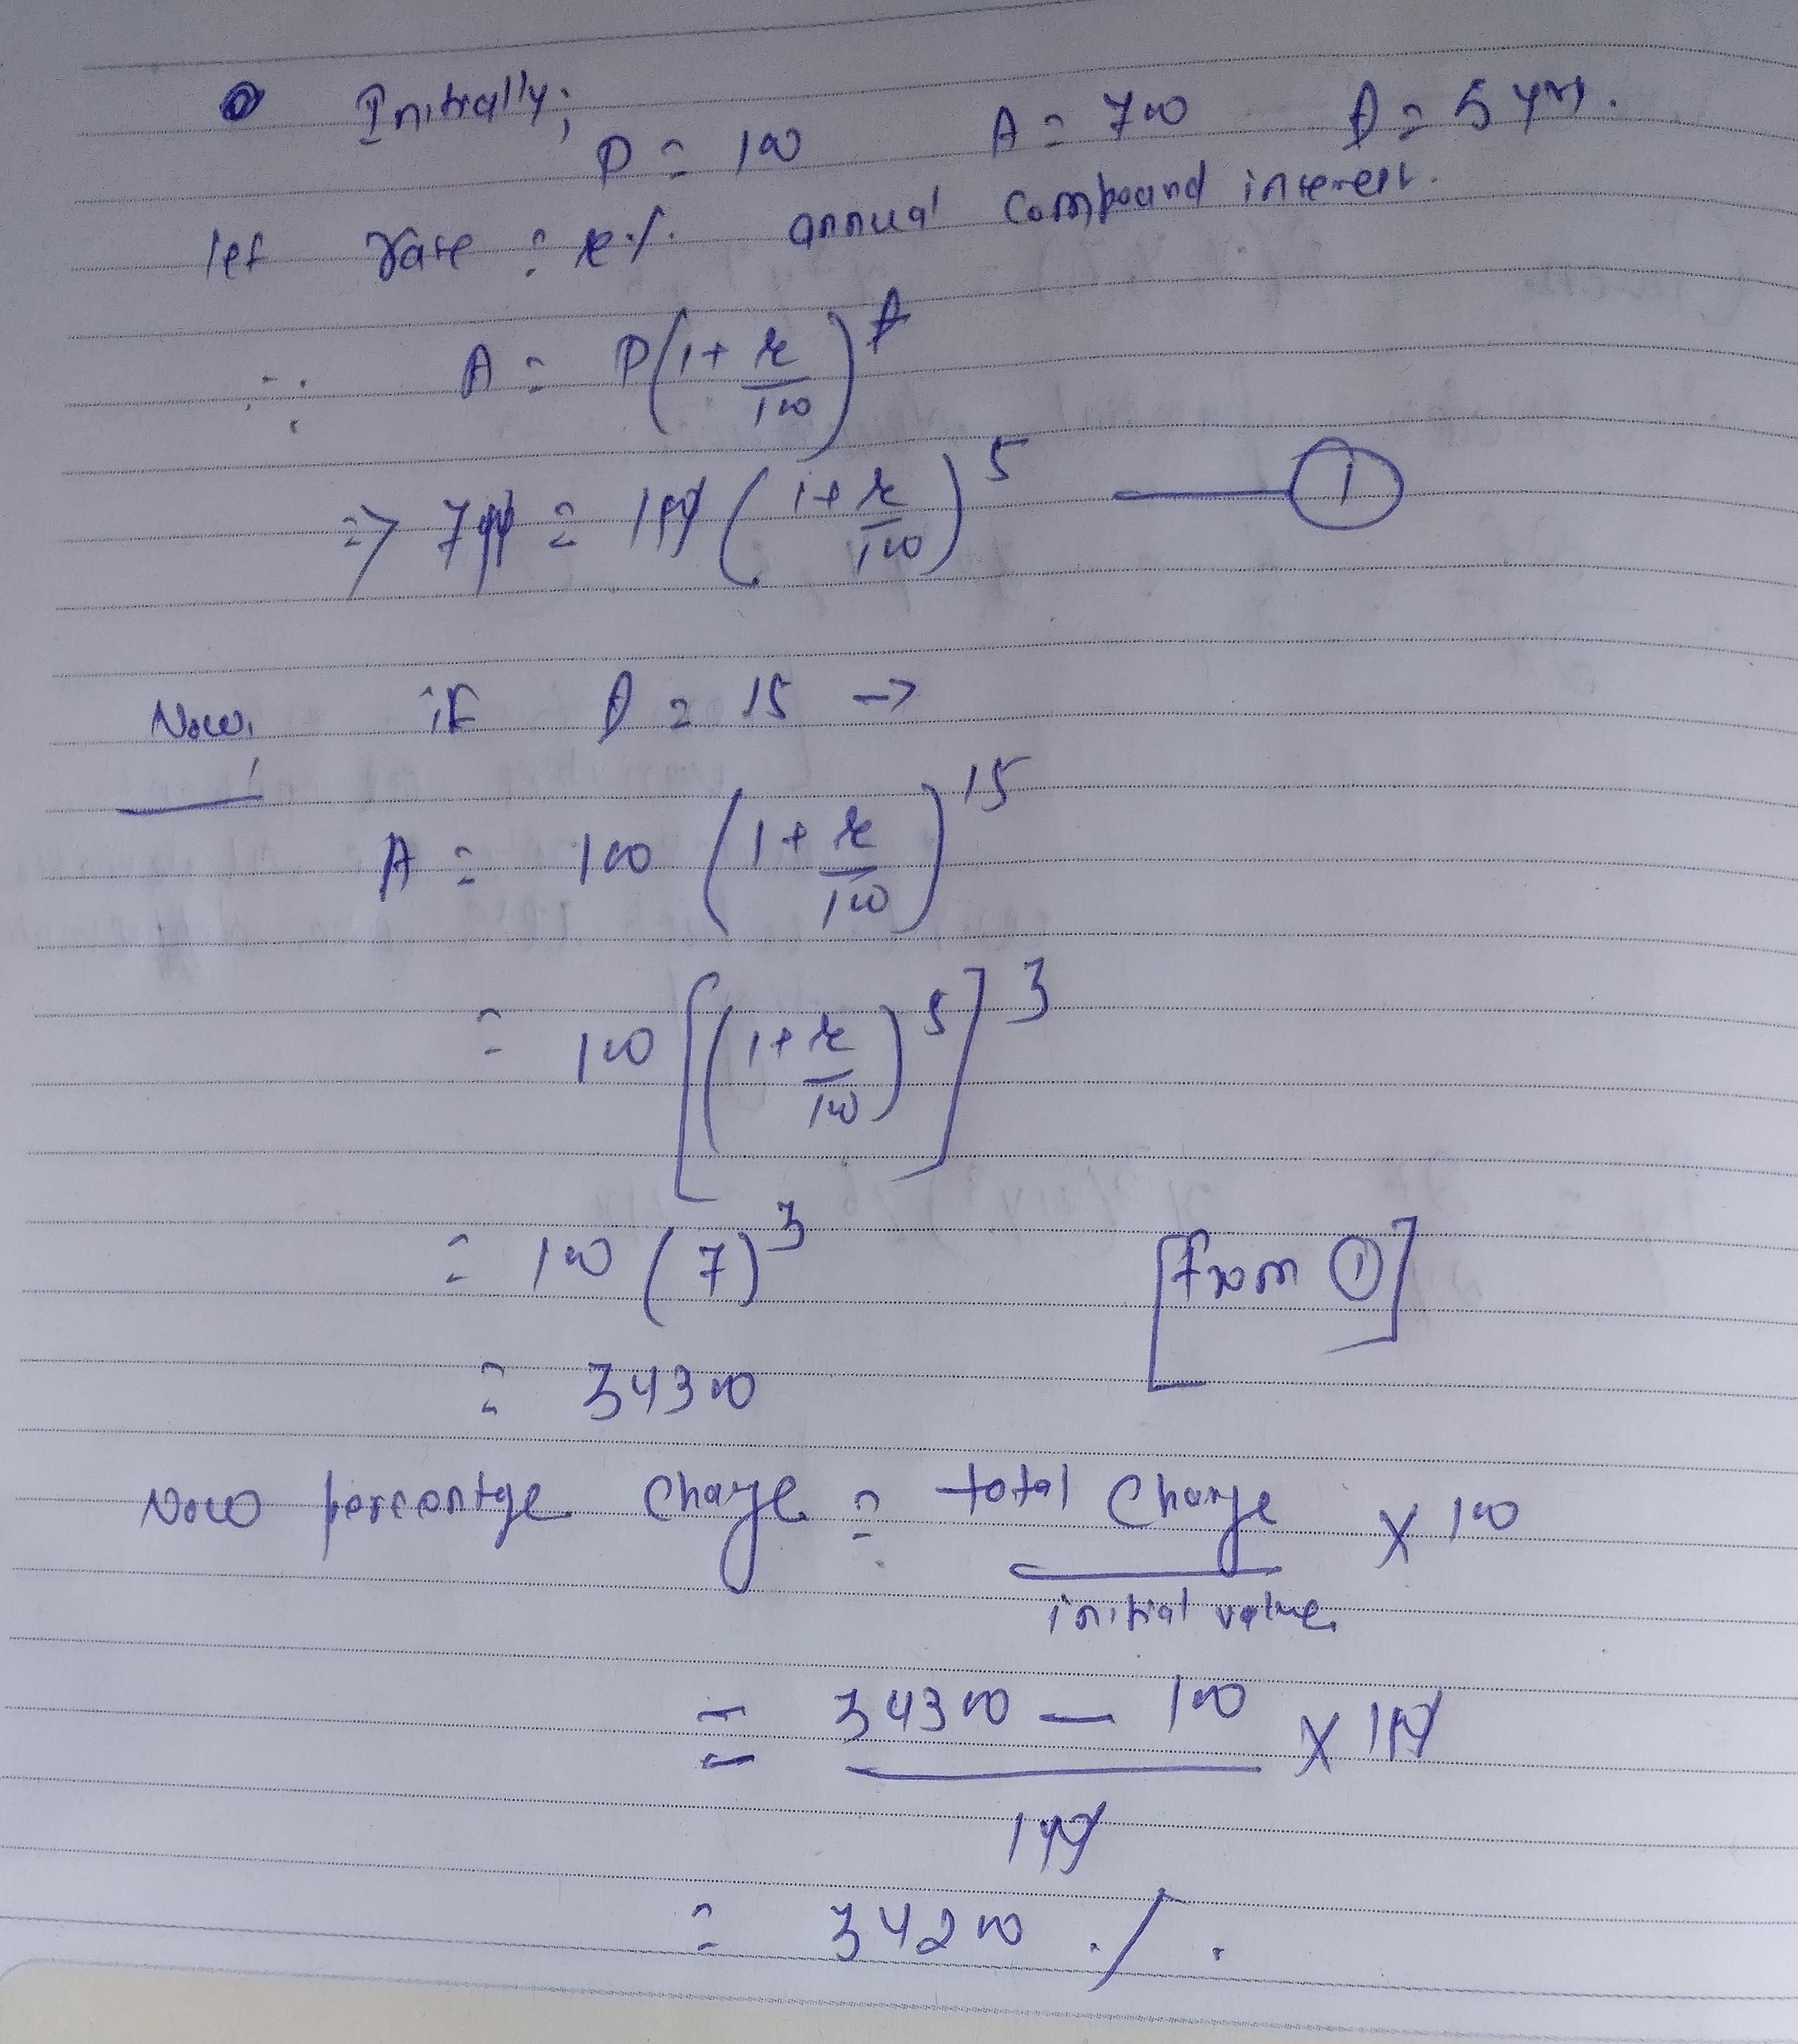 Initially; P = 100 A = 700 t = 5 yrs.
let rate = r% annual compound interest.
∴ A = P(1 + r/100)^t
=> 700 = 100 (1 + r/100)^5 — ①
Now, if t = 15 →
A = 100 (1 + r/100)^15
= 100 [(1 + r/100)^5]^3
= 100 (7)^3 [from ①]
= 34300
Now percentge change = total change / initial value × 100
= 34300 - 100 / 100 × 100
= 34200 %.